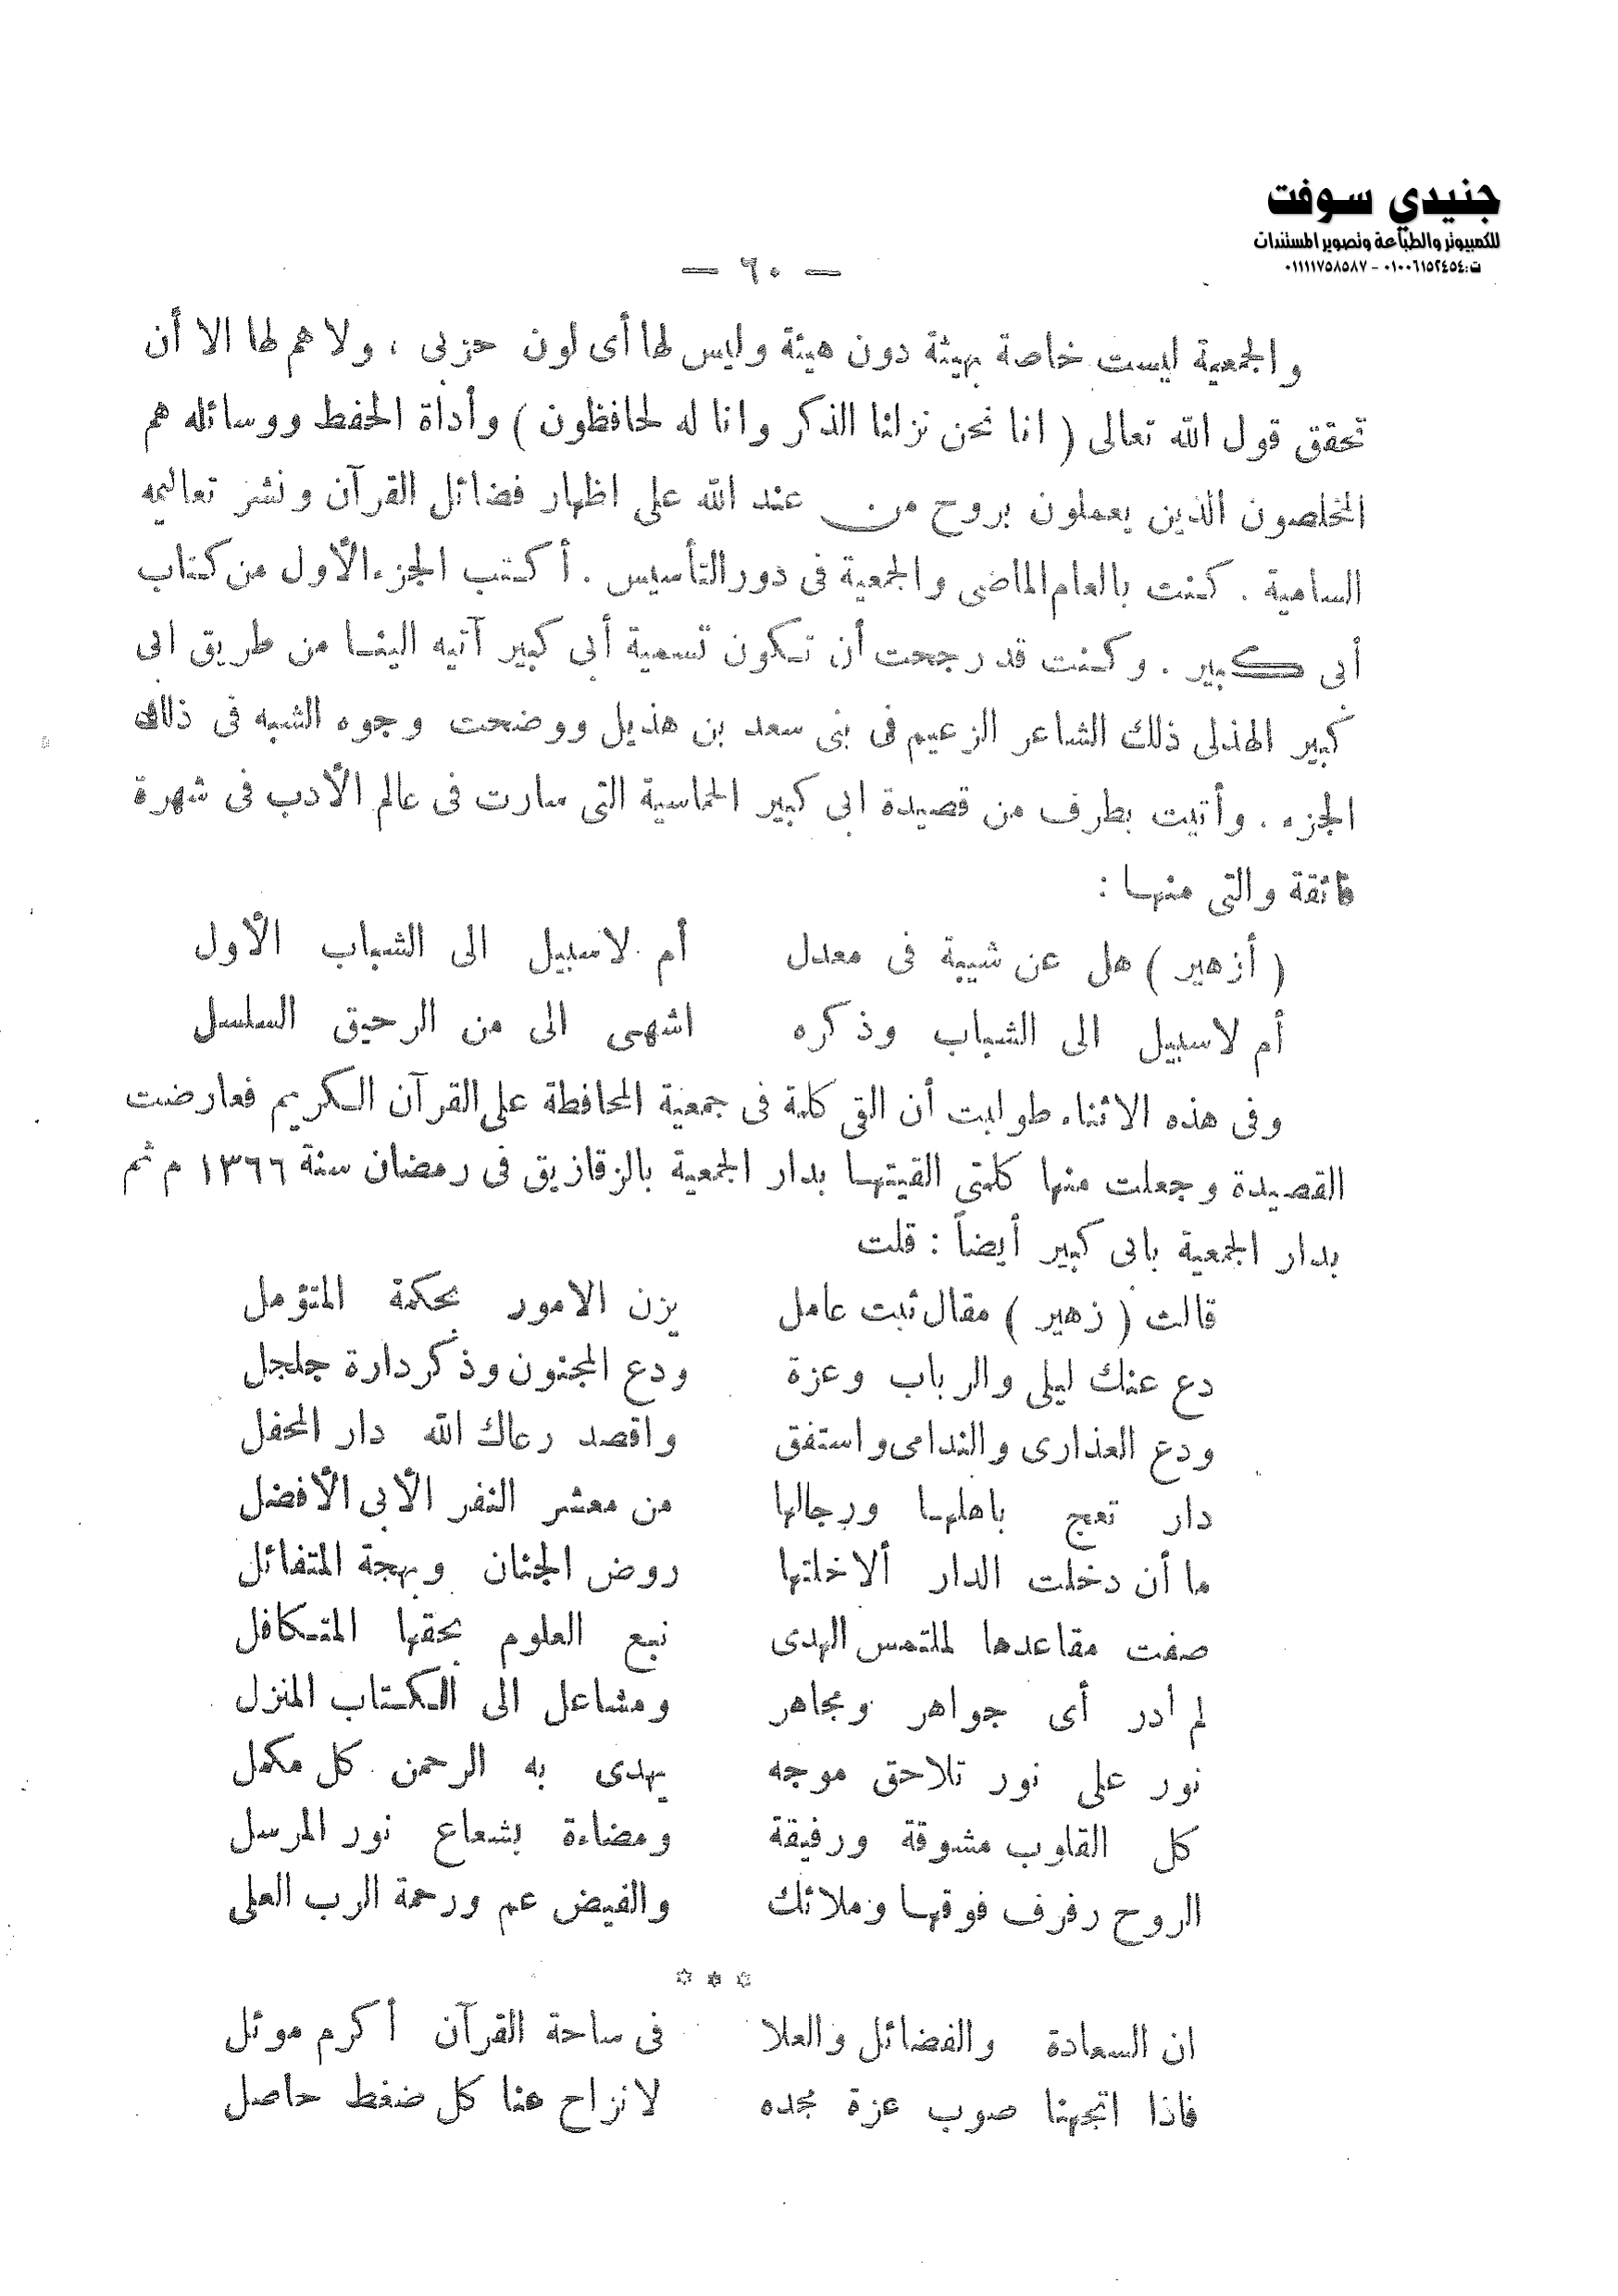 جنيدي سوفت
للكمبيوتر والطباعة وتصوير المستندات
ت: ٠١٠٠٦١٥٢٤٥٤ - ٠١١١١٧٥٨٥٨٧
— ٦٠ —
والجمعية ليست خاصة بهيئة دون هيئة وليس لها أى لون حزبى ، ولا هم لها الا أن
تحقق قول الله تعالى ( انا نحن نزلنا الذكر وانا له لحافظون ) وأداة الحفظ ووسائله هم
المخلصون الذين يعملون بروح من عند الله على اظهار فضائل القرآن ونشر تعاليمه
السامية . كنت بالعام الماضى والجمعية فى دور التأسيس . أكتب الجزء الأول من كتاب
أبى كبير . وكنت قد رجحت أن تكون تسمية أبى كبير آتيه الينا من طريق ابى
كبير الهذلى ذلك الشاعر الزعيم فى بنى سعد بن هذيل ووضحت وجوه الشبه فى ذلك
الجزء . وأتيت بطرف من قصيدة ابى كبير الحماسية التى سارت فى عالم الأدب فى شهرة
فائقة والتى منها :
( أزهير ) هل عن شيبة فى معدل أم لاسبيل الى الشباب الأول
أم لاسبيل الى الشباب وذكره اشهى الى من الرحيق السلسل
وفى هذه الاثناء طوابت أن القى كلمة فى جمعية المحافظة على القرآن الكريم فعارضت
القصيدة وجعلت منها كلمتى القيتها بدار الجمعية بالزقازيق فى رمضان سنة ١٣٦٦ م ثم
بدار الجمعية بابى كبير أيضاً : قلت
قالت ( زهير ) مقال ثبت عامل يزن الامور بحكمة المتؤمل
دع عنك ليلى والرباب وعزة ودع المجنون وذكر دارة جلجل
ودع العذارى والندامى واستفق واقصد رعاك الله دار المحفل
دار تعج باهلها ورجالها من معشر النفر الأبى الأفضل
ما أن دخلت الدار ألا خلتها روض الجنان وبهجة المتفائل
صفت مقاعدها لملتمس الهدى نبع العلوم بحقها المتكافل
لم أدر أى جواهر ومجاهر ومشاعل الى الكتاب المنزل
نور على نور تلاحق موجه يهدى به الرحمن كل مكمل
كل القلوب مشوقة ورفيقة ومضاءة بشعاع نور المرسل
الروح رفرف فوقها وملائك والفيض عم ورحمة الرب العلى
* * *
ان السعادة والفضائل والعلا فى ساحة القرآن أكرم موئل
فاذا اتجهنا صوب عزة مجده لانزاح هنا كل ضغط حاصل